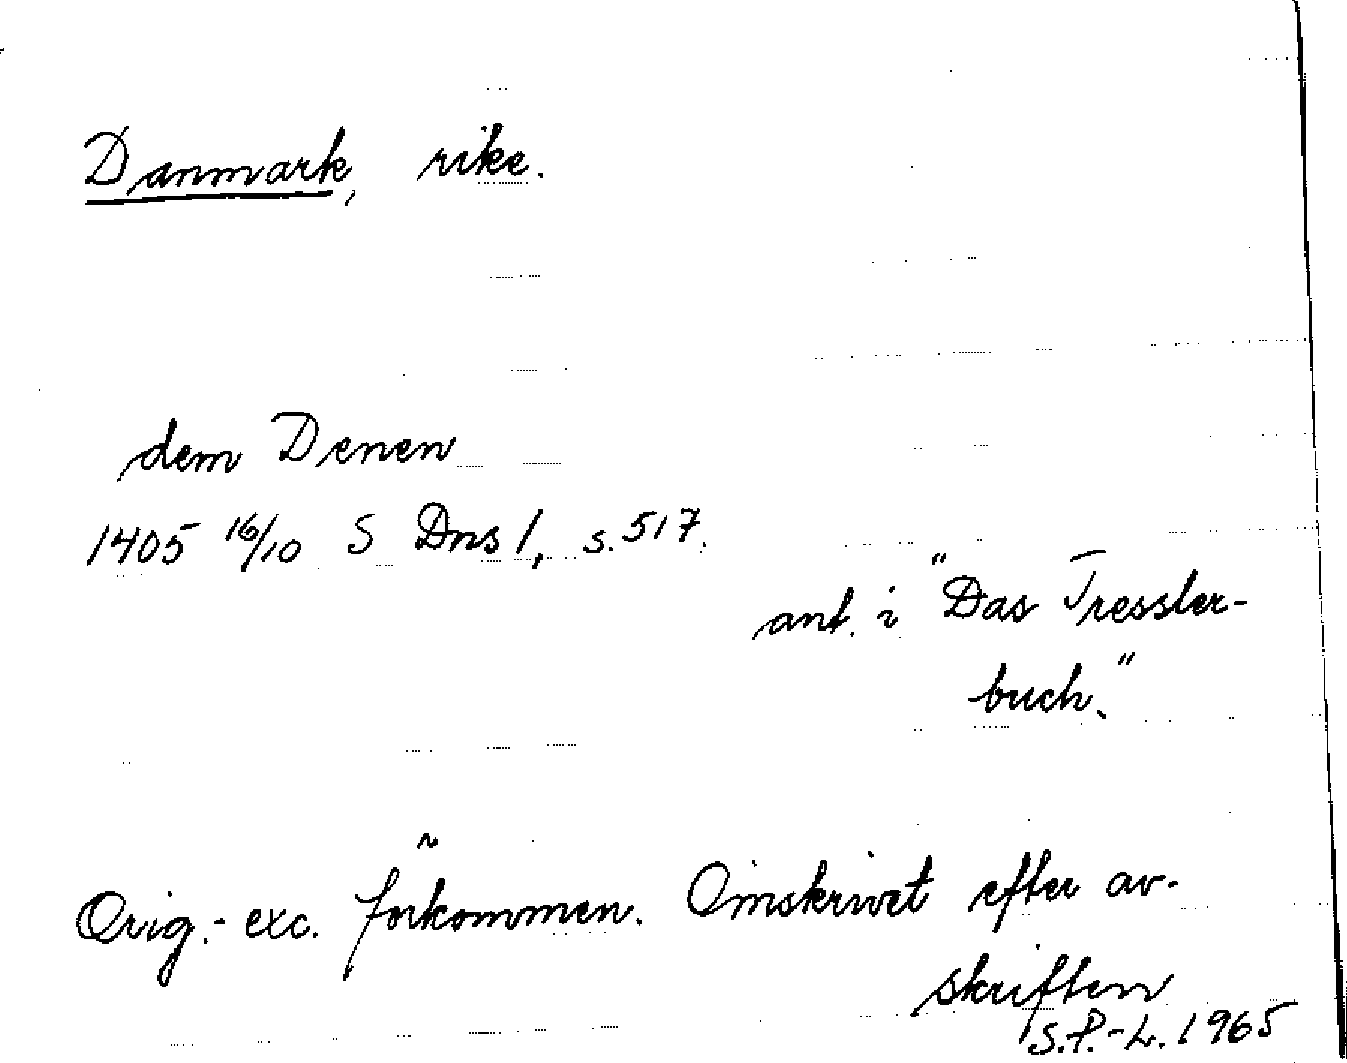 Danmark, rike.
dem Denen
1405 16/10 S Dns 1, s. 517.
ant. i "Das Tressler-
buch."
Orig.-exc. förkommen. Omskrivet efter av-
skriften
S.P.-L. 1965